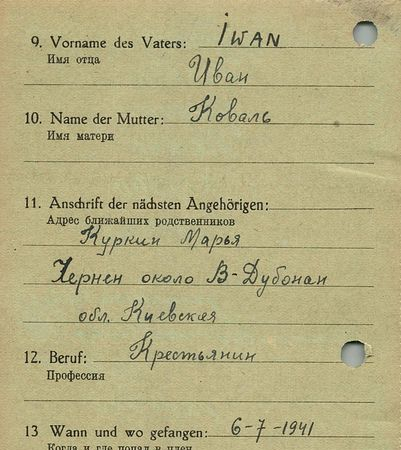 9. Vorname des Vaters: IWAN
Имя отца
Иван
10. Name der Mutter: Коваль
Имя матери
11. Anschrift der nächsten Angehörigen:
Адрес ближайших родственников
Куркин Марья
около В-Дубонан
обл. Киевская
12. Beruf: Крестьянин
Профессия
13 Wann und wo gefangen: 6-7-1941
Когда и где попал в плен